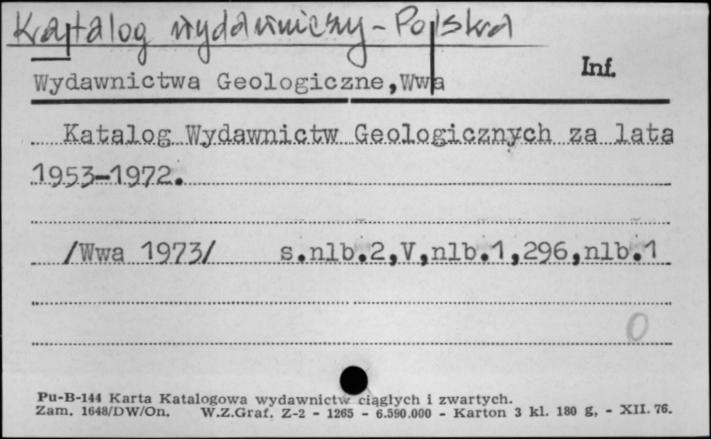 Katalog wydawniczy - Polska
Inf.
Wydawnictwa Geologiczne,Wwa
Katalog Wydawnictw Geologicznych za lata
1953-1972.
/Wwa 1973/ s.nlb.2,V,nlb.1,296,nlb.1
0
Pu-B-144 Karta Katalogowa wydawnictw ciągłych i zwartych.
Zam. 1648/DW/On. W.Z.Graf. Z-2 - 1265 - 6.590.000 - Karton 3 kl. 180 g. - XII. 76.